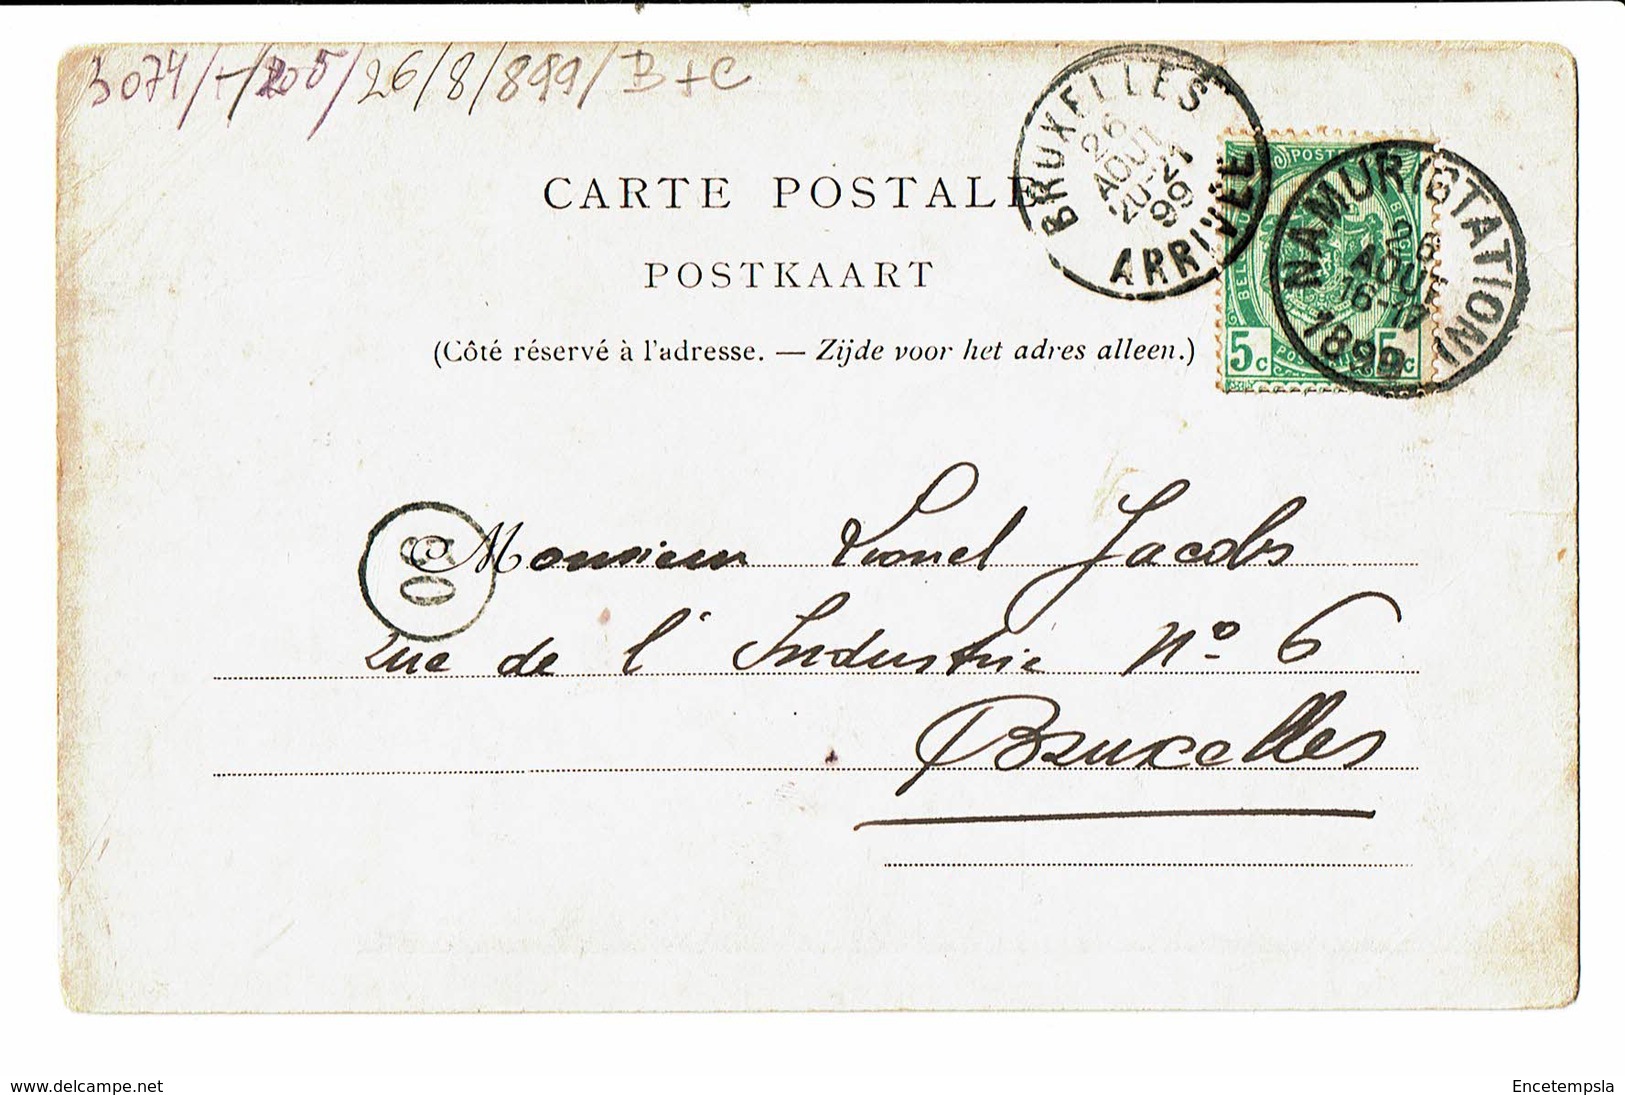 3074/-/205/26/8/899/B+C
BRUXELLES
26
AOUT
20-21
99
ARRIVÉE
NAMUR (STATION)
26
AOUT
16-17
1899
POSTES
5c 5c
CARTE POSTALE
POSTKAART
(Côté réservé à l'adresse. — Zijde voor het adres alleen.)
Monsieur Lionel Jacobs
Rue de l'Industrie Nº 6
Bruxelles
www.delcampe.net
Encetempsla